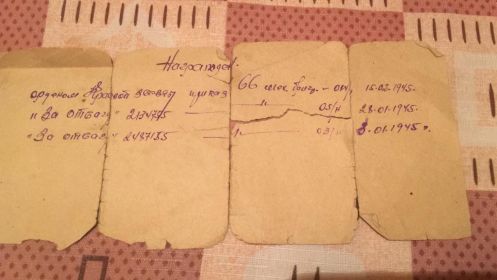 Награжден:
орденом Красной звезды приказ 66 мех бриг. - 04/н 15.02.1945г.
"За отвагу" 2134775 — " — 05/н 23.01.1945г.
"За отвагу" 2487135 — " — 03/н 8.01.1945г.